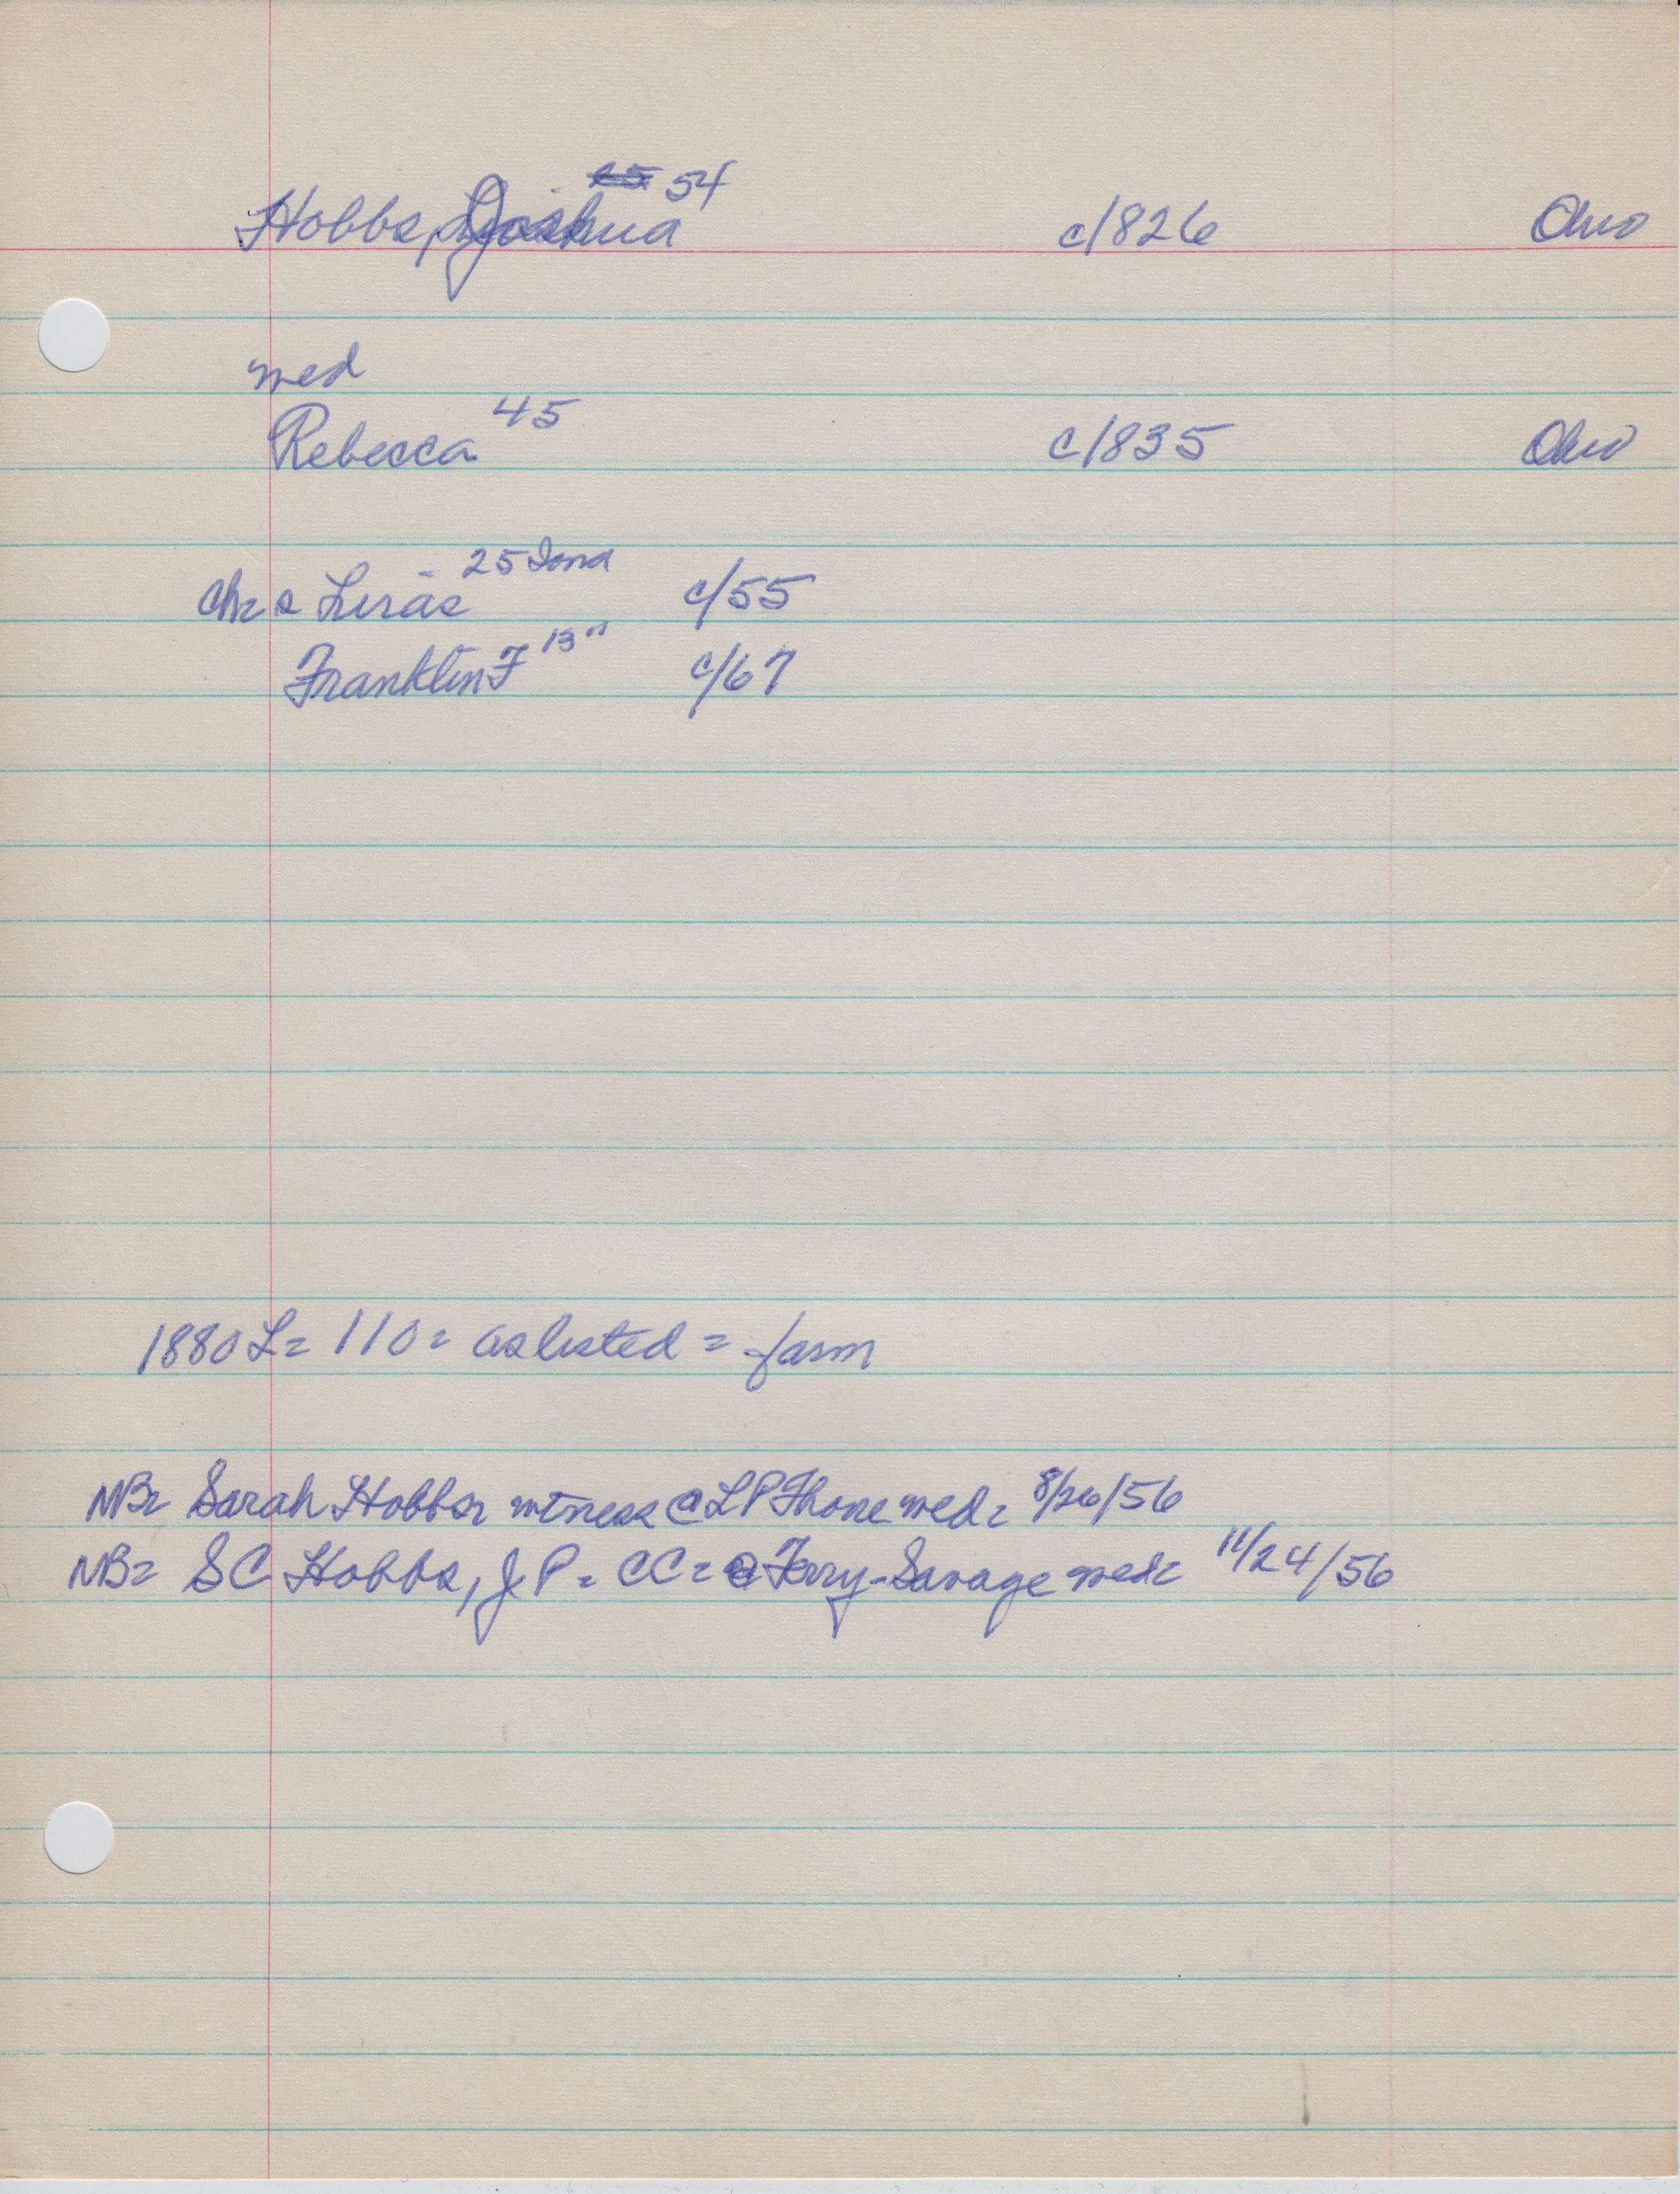 Hobbs, Joshua 54 c/826 Ohio
med
Rebecca 45 c/835 Ohio
25 Iowa
c/55
Franklin F 13 " c/67
1880 L= 110= as listed = farm
NB= Sarah Hobbs witness @ LP Thone wed= 8/26/56
NB= SC Hobbs, JP= CC= @ Ferry-Savage wed= 11/24/56